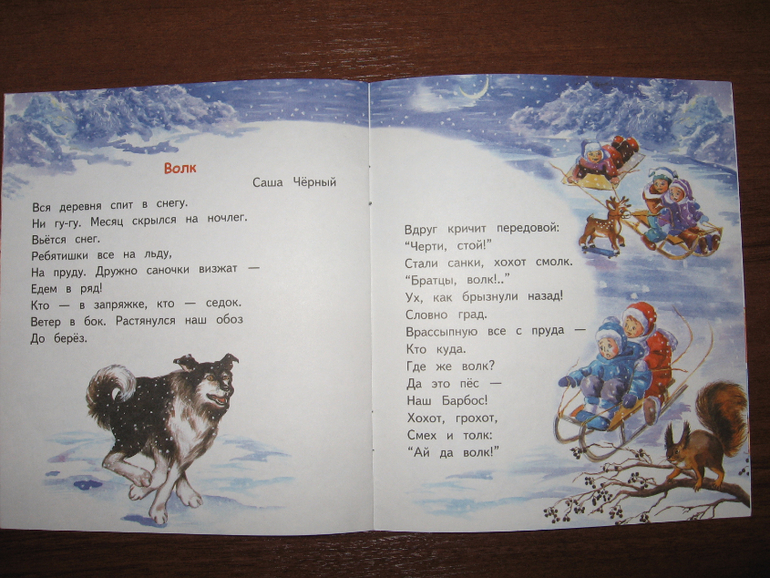 Волк
Саша Чёрный
Вся деревня спит в снегу.
Ни гу-гу. Месяц скрылся на ночлег.
Вьётся снег.
Ребятишки все на льду,
На пруду. Дружно саночки визжат —
Едем в ряд!
Кто — в запряжке, кто — седок.
Ветер в бок. Растянулся наш обоз
До берёз.
Вдруг кричит передовой:
"Черти, стой!"
Стали санки, хохот смолк.
"Братцы, волк!.."
Ух, как брызнули назад!
Словно град.
Врассыпную все с пруда —
Кто куда.
Где же волк?
Да это пёс —
Наш Барбос!
Хохот, грохот,
Смех и толк:
"Ай да волк!"